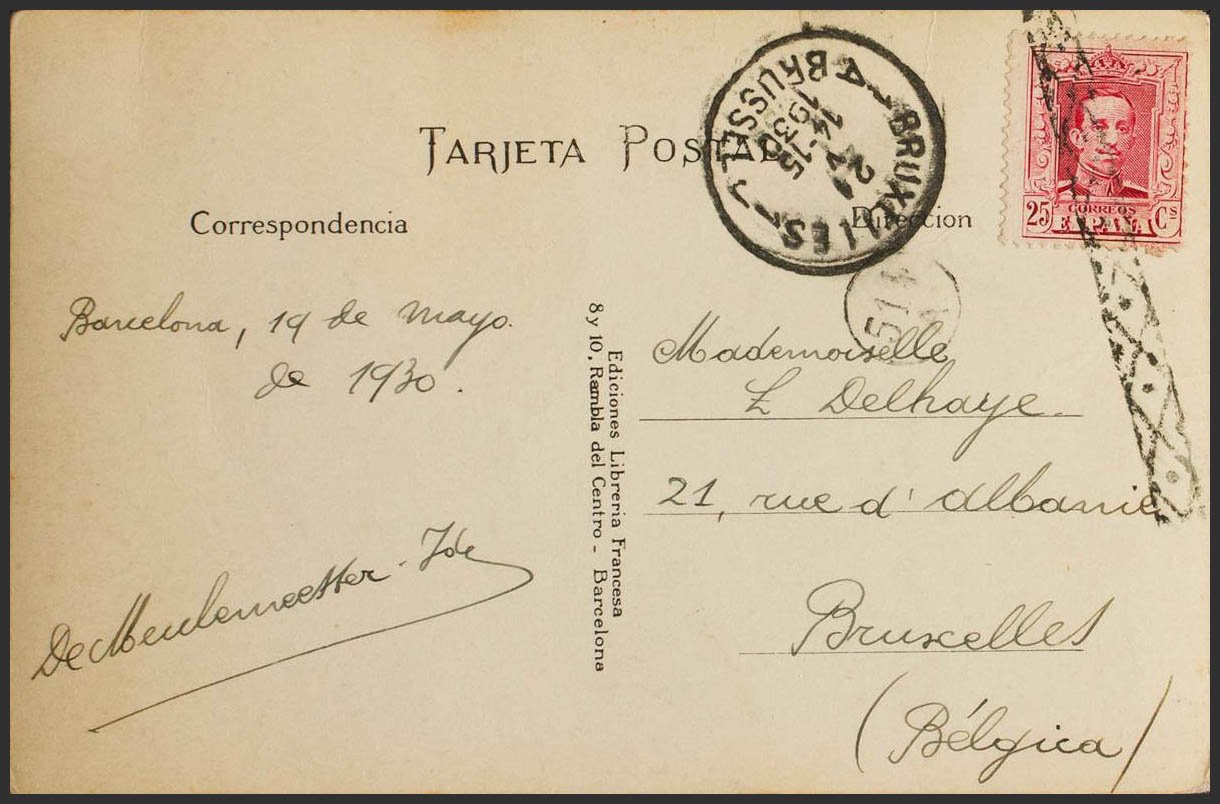 TARJETA POSTAL
Correspondencia
Direccion
BRUXELLES
BRUSSEL
A
14-15
1930
25 CORREOS Cs
ESPAÑA
514
Barcelona, 19 de mayo.
de 1930.
De Meulemeester-
Ediciones Libreria Francesa
8 y 10, Rambla del Centro - Barcelona
Mademoiselle
Delhaye.
21, rue d'Albanie
Bruxelles
(Bélgica)